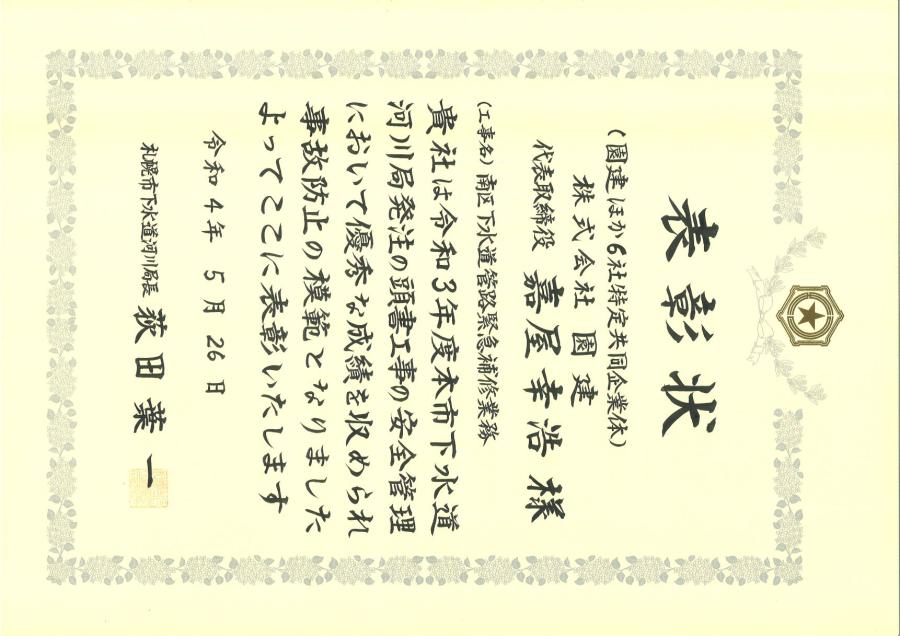 表彰状
(園建ほか6社特定共同企業体)
株式会社 園建
代表取締役 嘉屋幸浩様
(工事名)南区下水道管路緊急補修業務
貴社は令和3年度本市下水道
河川局発注の頭書工事の安全管理
において優秀な成績を収められ
事故防止の模範となりました
よってここに表彰いたします
令和4年5月26日
札幌市下水道河川局長 荻田葉一